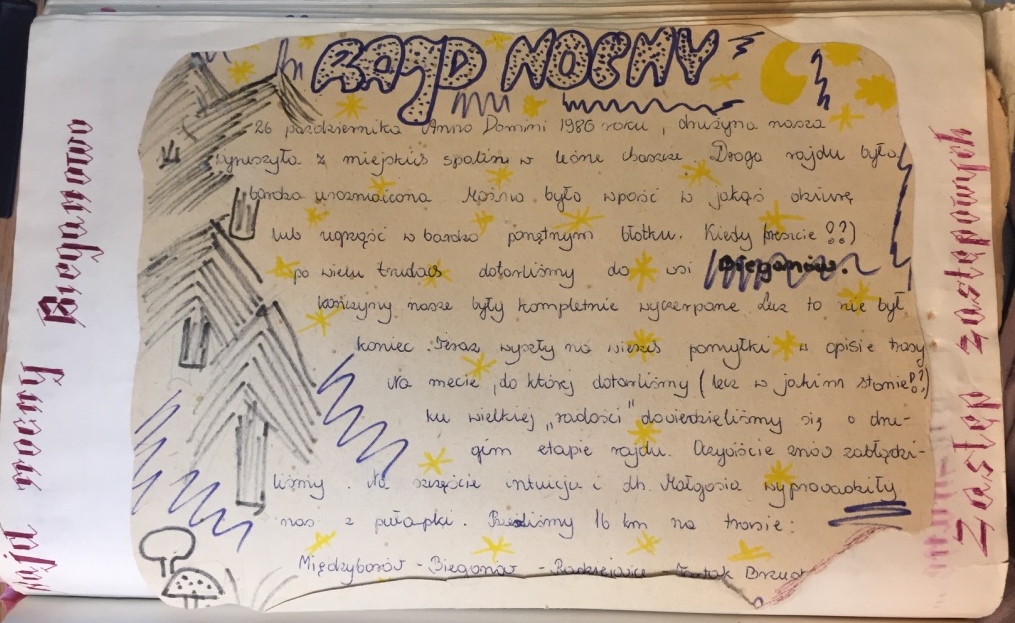 RAJD NOCNY
26 października Anno Domini 1986 roku, drużyna nasza
wyruszyła z miejskich spalin w leśne chaszcze. Droga rajdu była
bardzo urozmaicona Można było wpaść w jakąś dziurę
lub ugrząść w bardzo ponętnym błotku. Kiedy (!?)
po wielu trudach dotarliśmy do wsi Bieganów.
kończyny nasze były kompletnie wyczerpane. Lecz to nie był
koniec. Teraz wyszły na wierzch pomyłki w opisie trasy
Na mecie, do której dotarliśmy (lecz w jakim stanie!?)
ku wielkiej „radości" dowiedzieliśmy się o dru-
gim etapie rajdu. Oczywiście znów zabłądzi-
liśmy. Na szczęście intuicja i dh. Małgosia wyprowadziły
nas z pułapki. 16 km na trasie:
Międzyborów - Bieganów - Radziejowice
Rajd nocny Bieganowo
Zastęp zastępowych